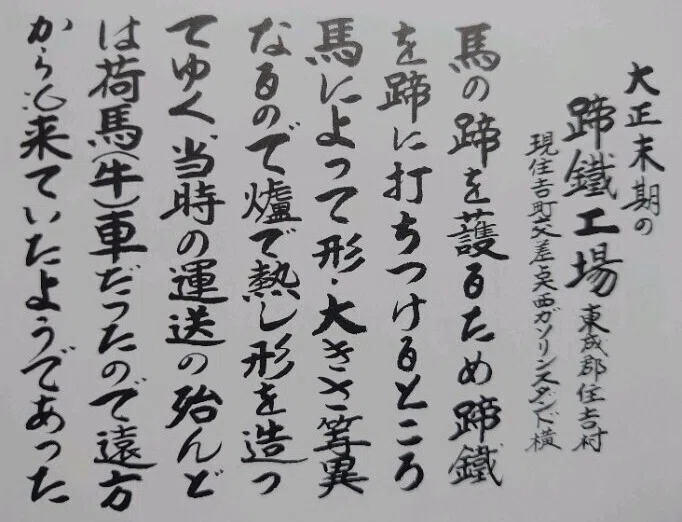 大正末期の
蹄鐵工場 東成郡住吉村
現住吉町交差点西ガソリンスタンド横
馬の蹄を護るため蹄鐵
を蹄に打ちつけるところ
馬によって形・大きさ等異
なるので爐で熱し形を造っ
てゆく当時の運送の殆んど
は荷馬(牛)車だったので遠方
からも来ていたようであった